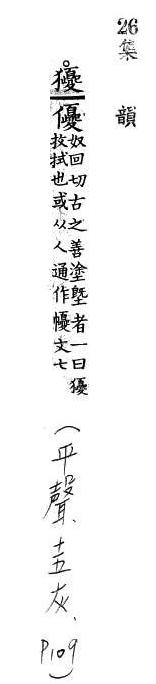 26 集韻
獶 優 奴回切古之善塗塈者一曰獶
抆拭也或从人通作㠢文七
（平聲、十五灰、P109）